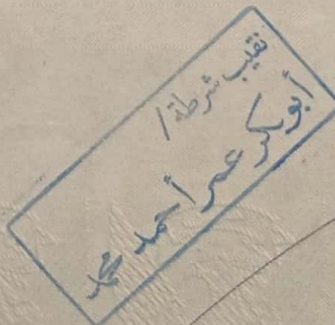 نقيب شرطة/
أبوبكر عمر أحمد محمد